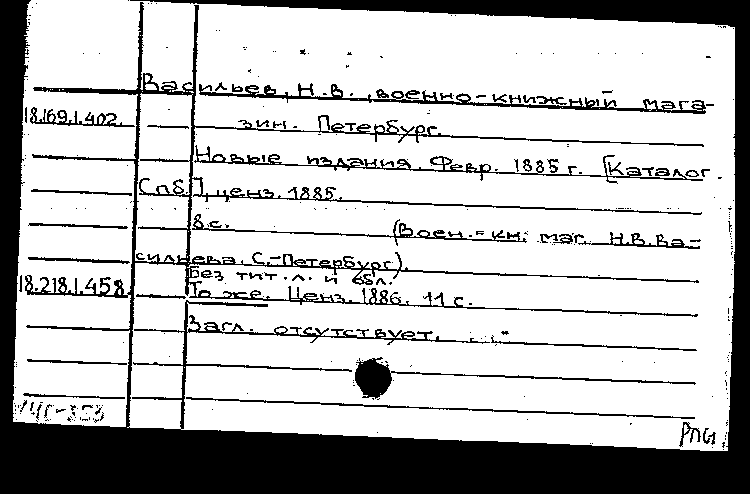 Васильев, Н.В., военно-книжный мага-
18.169.1.402.
зин. Петербург.
Новые издания. Февр. 1885 г. [Каталог.
Спб.], ценз. 1885.
8 с. (Воен.-кн. маг. Н.В.Ва-
сильева. С.-Петербург).
Без тит. л. и обл.
18.218.1.458.
То же. Ценз. 1886. 11 с.
Загл. отсутствует.